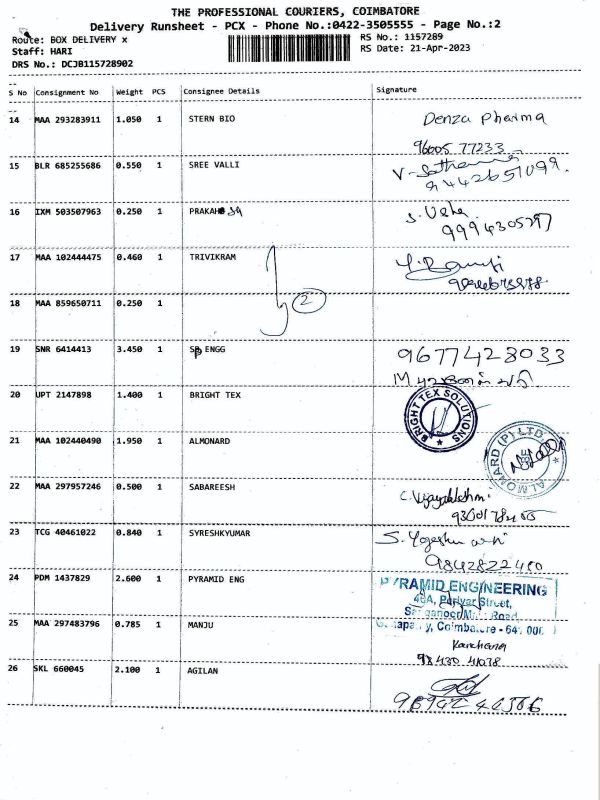 THE PROFESSIONAL COURIERS, COIMBATORE
Delivery Runsheet - PCX - Phone No.:0422-3505555 - Page No.:2
Route: BOX DELIVERY x
RS No.: 1157289
Staff: HARI
RS Date: 21-Apr-2023
DRS No.: DCJB115728902
S No Consignment No Weight PCS Consignee Details Signature
14 MAA 293283911 1.050 1 STERN BIO Denza Pharma
96005 77233
15 BLR 685255686 0.550 1 SREE VALLI
9442651099.
16 IXM 503507963 0.250 1 PRAKAH
S. Usha
17 MAA 102444475 0.460 1 TRIVIKRAM
18 MAA 859650711 0.250 1
2
19 SNR 6414413 3.450 1 ENGG 9677428033
20 UPT 2147898 1.400 1 BRIGHT TEX
BRIGHT TEX SOLUTIONS
21 MAA 102440490 1.950 1 ALMONARD
ALMONARD (P) LTD.
22 MAA 297957246 0.500 1 SABAREESH
23 TCG 40461022 0.840 1 SYRESHKYUMAR
9842822480
24 PDM 1437829 2.600 1 PYRAMID ENG
PYRAMID ENGINEERING
48A, Periyar Street,
Road,
Coimbatore - 641 006
25 MAA 297483796 0.785 1 MANJU
Kanchana
26 SKL 660045 2.100 1 AGILAN